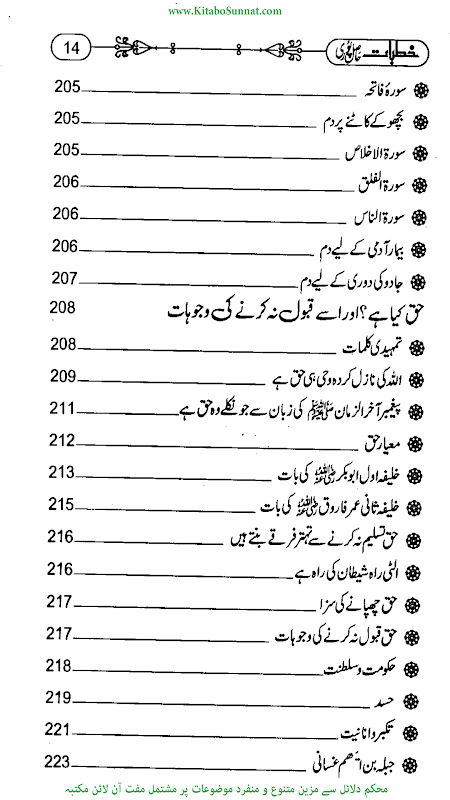 www.KitaboSunnat.com
خطبات عاصم پوری 14
سورۂ فاتحہ 205
بچھو کے کاٹنے پر دم 205
سورۃ الاخلاص 205
سورۃ الفلق 206
سورۃ الناس 206
بیمار آدمی کے لیے دم 206
جادو کی دوری کے لیے دم 207
حق کیا ہے؟ اور اسے قبول نہ کرنے کی وجوہات 208
تمہیدی کلمات 208
اللہ کی نازل کردہ وحی ہی حق ہے 209
پیغمبر آخر الزمان ﷺ کی زبان سے جو نکلے وہ حق ہے 211
معیار حق 212
خلیفہ اول ابو بکر رضی اللہ عنہ کی بات 213
خلیفہ ثانی عمر فاروق رضی اللہ عنہ کی بات 215
حق تسلیم نہ کرنے سے تہتر فرقے بنتے ہیں 216
الٹی راہ شیطان کی راہ ہے 216
حق چھپانے کی سزا 217
حق قبول نہ کرنے کی وجوہات 217
حکومت و سلطنت 218
حسد 219
تکبر و انانیت 221
جبلہ بن ایھم غسانی 223
محکم دلائل سے مزین متنوع و منفرد موضوعات پر مشتمل مفت آن لائن مکتبہ